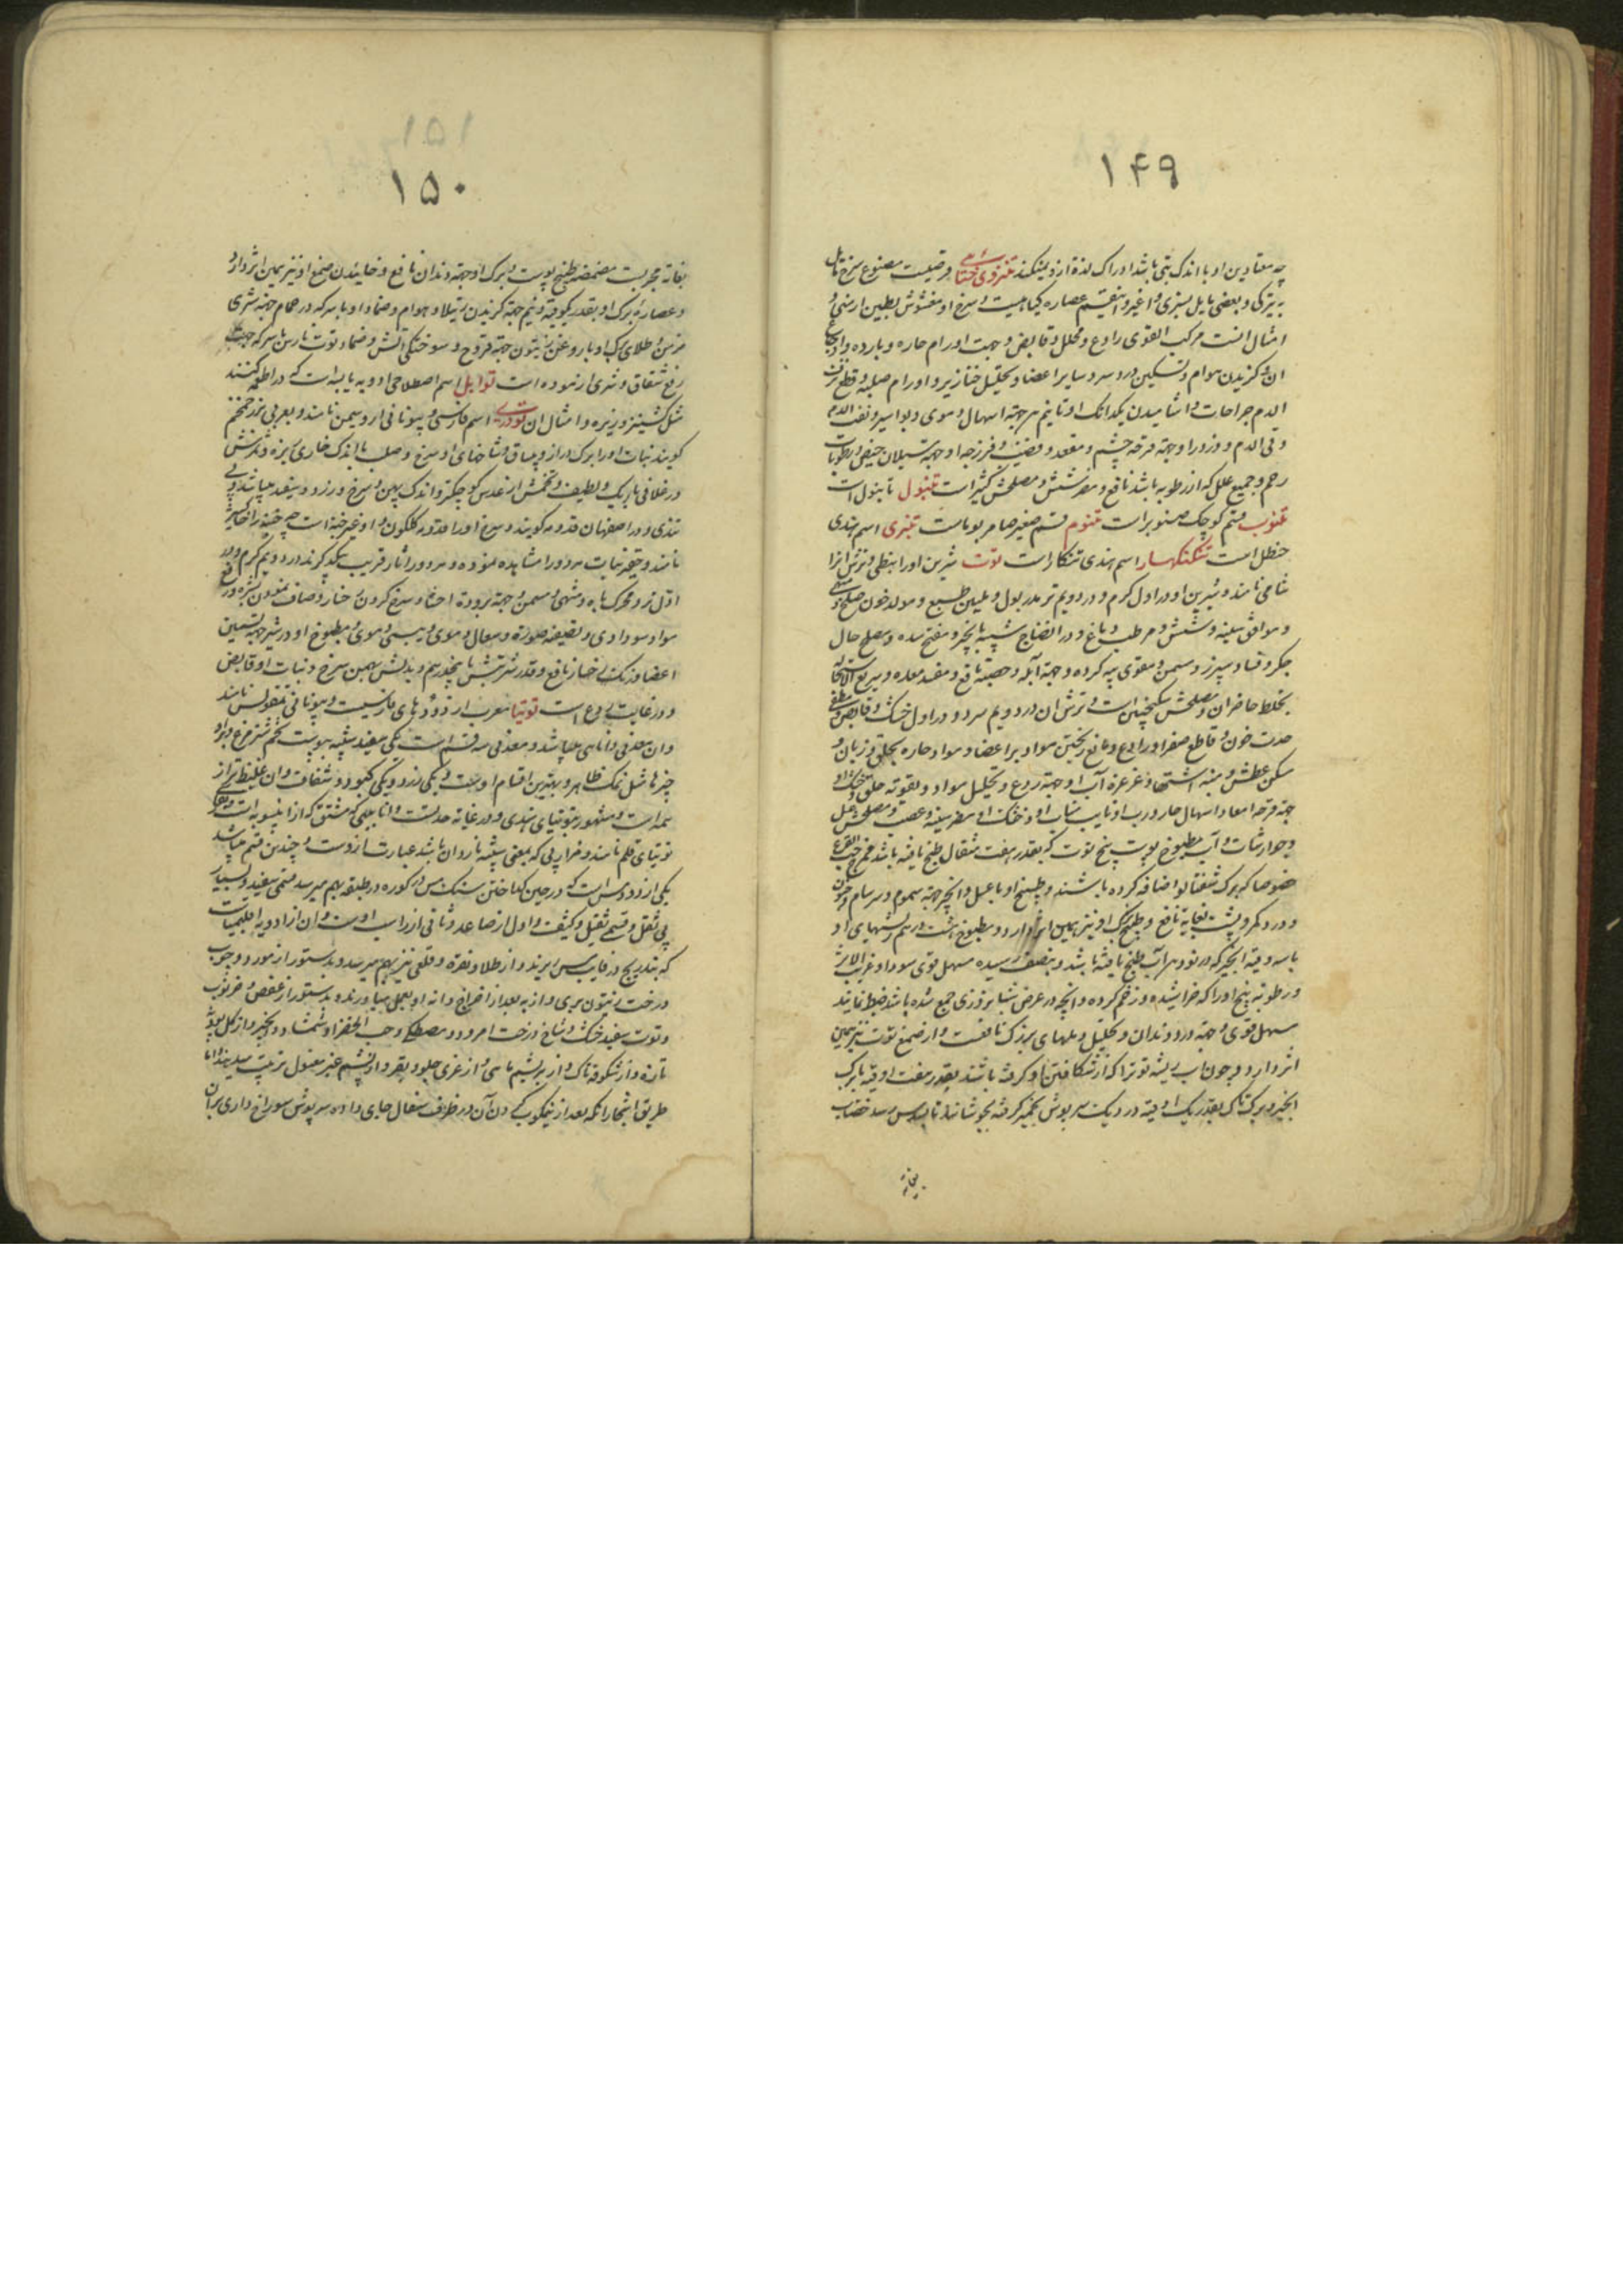 ۱۴۹
چه معتادین او با اندک بنی باشد ادراک لذة ازو نمیکنند تنزوی ختائی قرصیست مصنوع سرخ مایل
به تیرکی و بعضی مایل بسبزی و اغبر و این قسم عصاره کیاهیست و سرخ او مغشوش بطین ارمنی و
امثال انست مرکب القوی رادع و محلل و قابض و جهت اورام حاره و بارده و اوجاع
ان و کزیدن هوام و تسکین درد سر و سایر اعضا و تحلیل خنازیر و اورام صلبه و قطع نزف
الدم جراحات و اشامیدن یکدانک او تا نیم درهم جهة اسهال دموی و بواسیر و نفث الدم
و قی الدم و ذرور او جهة قرحه چشم و مقعد و قضیب و فرزجه او جهة سیلان حیض و رطوبات
رحم و جمیع علل که از رطوبه باشد نافع و مضر شش و مصلحش کثیراست تنبول تانبول است
تنوب قسم کوچک صنوبر است تنوم قسم صغیر صامریوماست تنبری اسم هندی
حنظل است تنکنکهار اسم هندی تنکار است توت شیرین او را نبطی و ترش انرا
شامی نامند و شیرین او در اول کرم و در دویم تر مدر بول و ملین طبع و مولد خون صالح
و موافق سینه و شش و مرطب دماغ و در انضاج شبیه بانجیر و مفتح سده و مصلح حال
جکر و فساد سپرز و مسمن و مقوی پیه کرده و جهة آبله و حصبه نافع و مفسد معده و سریع الاستحاله
بخلط حاضر ان و مصلحش سکنجبین است و ترش ان در دویم سرد و در اول خشک و قابض و مطفی
حدت خون و قاطع صفرا و رادع و مانع ریختن مواد بر اعضا و مواد حاره بحلق و زبان و
مسکن عطش و منبه اشتها و غرغره آب او جهة ردع و تحلیل مواد و تقویه حلق
جهة قرحه امعا و اسهال حار و رب او نایب مناب او و خشک او مضر سینه و عصب و مصلحش عسل
و جوارشات و آب مطبوخ پوست بیخ توت که بقدر هفت مثقال طبخ یافته باشد مخرج حب القرع
خصوصا که برک شفتالو اضافه کرده باشند و طبیخ او با عسل و انجیر جهة سموم و سرسام و جنون
و درد کمر و پشت بغایة نافع و طبیخ برک او نیز همین اثر دارد و مطبوخ هشت درهم ریشهای او
با سه وقیه انجیر که در نود درهم آب طبخ یافته باشد و بنصف رسیده مسهل قوی سودا و غریب الاثر
و رطوبه بیخ او را که خراشیده و زخم کرده و انچه در عرض شبانروزی جمع شده باشد ضبط نمایند
مسهل قوی و جهة درد دندان و تحلیل دملهای بزرک نافعست و از صمغ توت نیز همین
اثر دارد و چون آب ریشه توت را که از شکافتن او کرفته باشند بقدر هفت اوقیه با برک
انجیر و برک تاک بقدر یک اوقیه در دیک سرپوش بخمیر کرفته بجوشانند تا بسدس رسد خضاب
بغایة
۱۵۱
۱۵۰
بغایة مجربست مضمضه طبیخ پوست و برک او جهة دندان نافع و خائیدن صمغ او نیز همین اثر دارد
و عصاره برک او بقدر یکوقیه و نیم جهة کزیدن رتیلا و هوام و ضماد او با سرکه در حمام جهة شری
مزمن و طلای برک او با روغن زیتون جهة قروح و سوختکی آتش و ضماد توت نارس با سرکه جهت
رفع شقاق و شری ازموده است توابل اسم اصطلاحی ادویه یابسه است که در اطعمه کنند
مثل کشنیز و زیره و امثال ان تودری اسم فارسی و بیونانی اروسیمن نامند و بعربی بزر خمخم
کویند نبات او را برک دراز و پی ساق و شاخهای او سرخ و صلب با اندک خاری ریزه و ثمرش
در غلافی باریک و لطیف و تخمش از عدس کوچکتر و اندک پهن و سرخ و زرد و سفید میباشد و بی
تندی و در اصفهان قدومه کویند و سرخ او را قدومه کلکون و او غیر خبه است چه خبه را خاکشیر
نامند و حقیر نبات هر دو را مشاهده نموده و هر دو را آثار قریب بیکدیکرند در دویم کرم و در
اول تر و محرک باه و مشهی و مسمن و جهة برودة احشا و سرخ کردن رخسار و صاف نمودن بشره و رفع
مواد سوداوی و تصفیه صوت و سعال دموی و یبسی و موی و مطبوخ او در شیر جهة تسمین
اعضا و رنک رخسار نافع و قدر شربتش تا پنجدرهم و بدلش بهمن سرخ و نبات او قابض
و در غایت ردع است توتیا معرب از دودهای فارسیست و بیونانی نمقولس نامند
و ان معدنی و اناسی میباشد و معدنی سه قسم است یکی سفید شبیه بپوست تخم شترمرغ و برو
چیزها مثل نمک ظاهر و بهترین اقسام اوست و یکی زرد و یکی کبود و شفاف و ان غلیظتر از
همه است و مشهور بتوتیای هندی و در غایة حدتست و اقلیمی که مشتق که از اینسوبه است و انرا
توتیای قلم نامند و فرازپی که بمعنی سپشه ناردان باشد عبارت ازوست و چندین قسم میباشد
یکی از دود مس است که در حین کداختن سنک مس در کوره در طبقه بهم میرسد قسمی سفید و بسیار
بی ثقل و قسمی ثقیل و کثیف و اول از صاعد و ثانی از راسب اوست و ان از ادویه اقلیمیاست
که بتدریج در قالب مس ریزند و از طلا و نقره و قلعی نیز بهم میرسد و بدستور از مورد و چوب
درخت زیتون بری و از به بعد از اخراج دانه او بعمل میاورند و بدستور از عفص و خرنوب
و توت سفید خشک و شاخ درخت امرود و مصطکی و حب الخضرا و شمشاد و انجیر و از کل به و
تازه و از شکوفه تاک و از بریشیم ماهی و از غری جلود بقر و از پشم غیر مغسول ترتیب میدهند اما
طریق اشجار انکه بعد از نیمکوب کردن آن در ظرف سفال جای داده سرپوش سوراخ داری بر ان